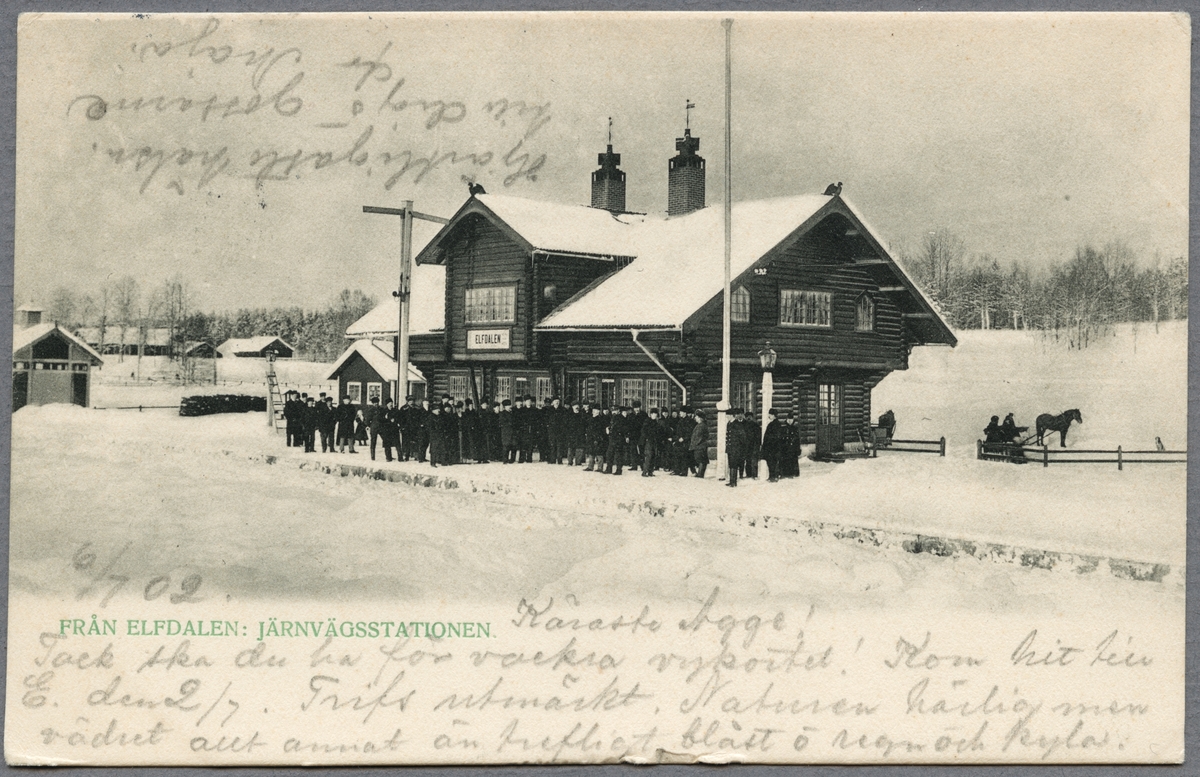 Hjärtligaste häls.
till
ELFDALEN
6/7 02.
FRÅN ELFDALEN: JÄRNVÄGSSTATIONEN.
Käraste Agge!
Tack ska du ha för vackra vykortet! Kom hit till
E. den 2/7. Trifs utmärkt. Naturen härlig men
vädret allt annat än trefligt blåst ö regn och kyla.